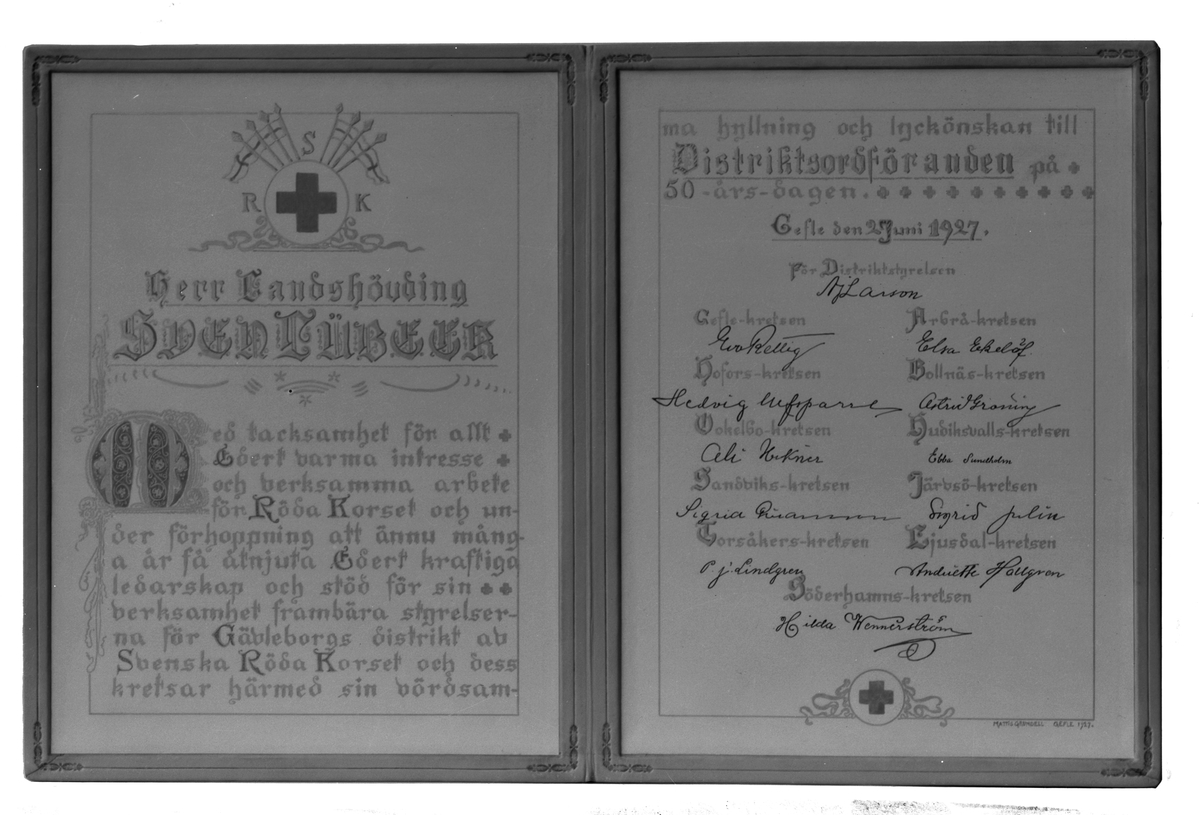 S
R K
Herr Landshövding
SVEN LÜBECK
Med tacksamhet för allt
Edert varma intresse
och verksamma arbete
för Röda Korset och un-
der förhoppning att ännu mång-
a år få åtnjuta Edert kraftiga
ledarskap och stöd för sin
verksamhet frambära styrelser-
na för Gävleborgs distrikt av
Svenska Röda Korset och dess
kretsar härmed sin vördsam-
ma hyllning och lyckönskan till
Distriktsordföranden på
50-års-dagen.
Gefle den 2 Juni 1927.
För Distriktstyrelsen
AjLarson
Gefle-kretsen Arbrå-kretsen
Eva Rettig Elsa Ekelöf
Hofors-kretsen Bollnäs-kretsen
Hedvig Uefsparre Astrid Groning
Ockelbo-kretsen Hudiksvalls-kretsen
Ebba Sundholm
Sandviks-kretsen Järvsö-kretsen
Sigrid Sigrid Julin
Torsåkers-kretsen Ljusdal-kretsen
P j. Lindgren Andriette Hallgren
Söderhamns-kretsen
Hilda Wennerström
GEFLE 1927.